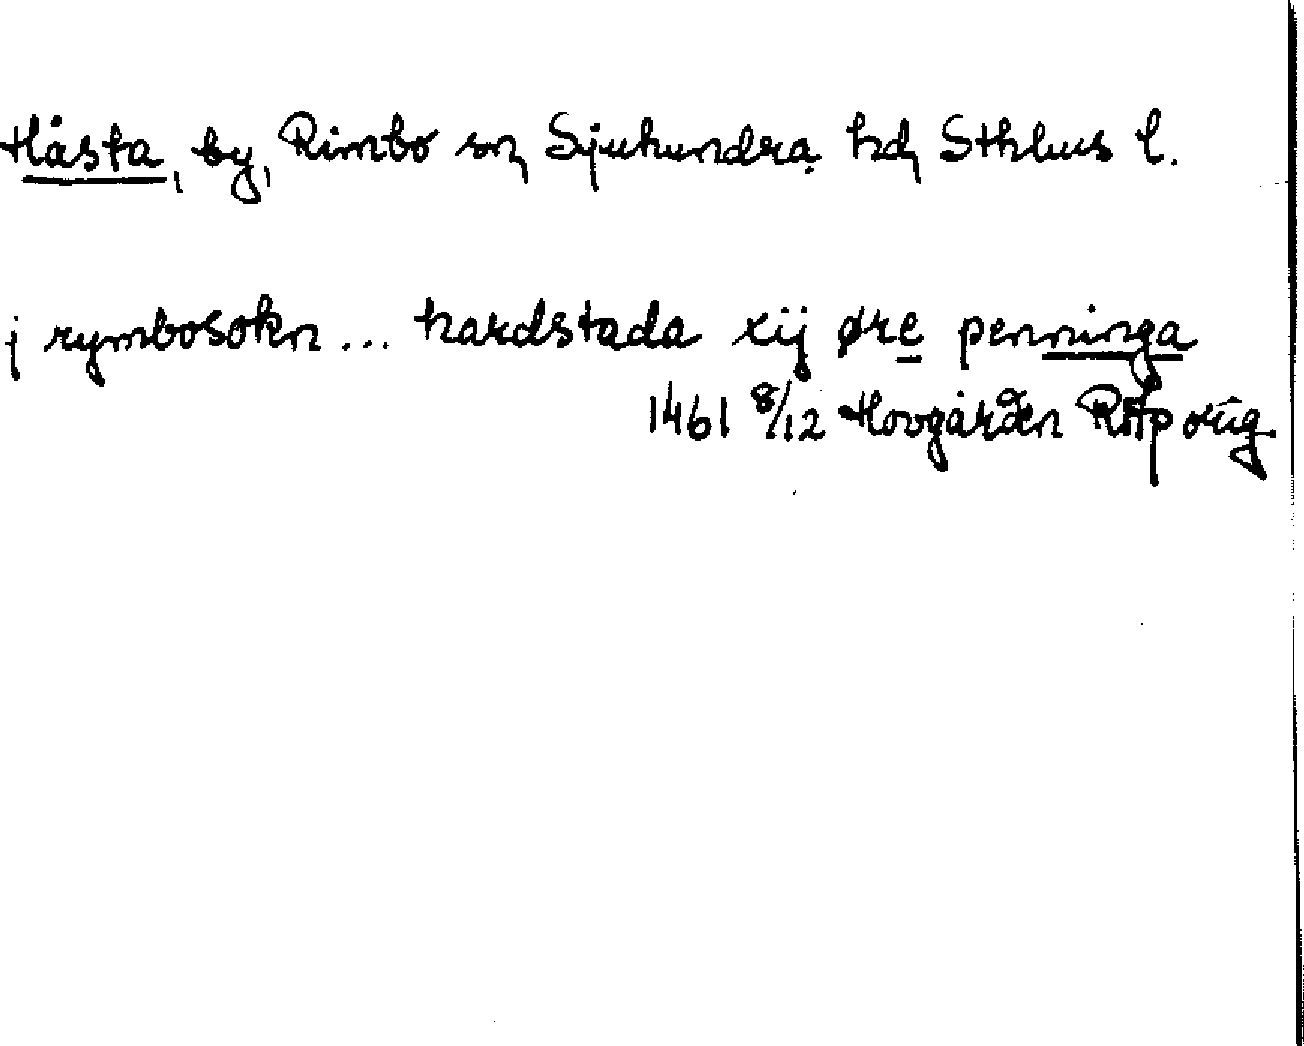 Håsta, by, Rimbo sn, Sjuhundra hd, Sthlms l.
j rymbosokn ... hardstada xij øre penninga
1461 8/12 Hovgården RAp orig.